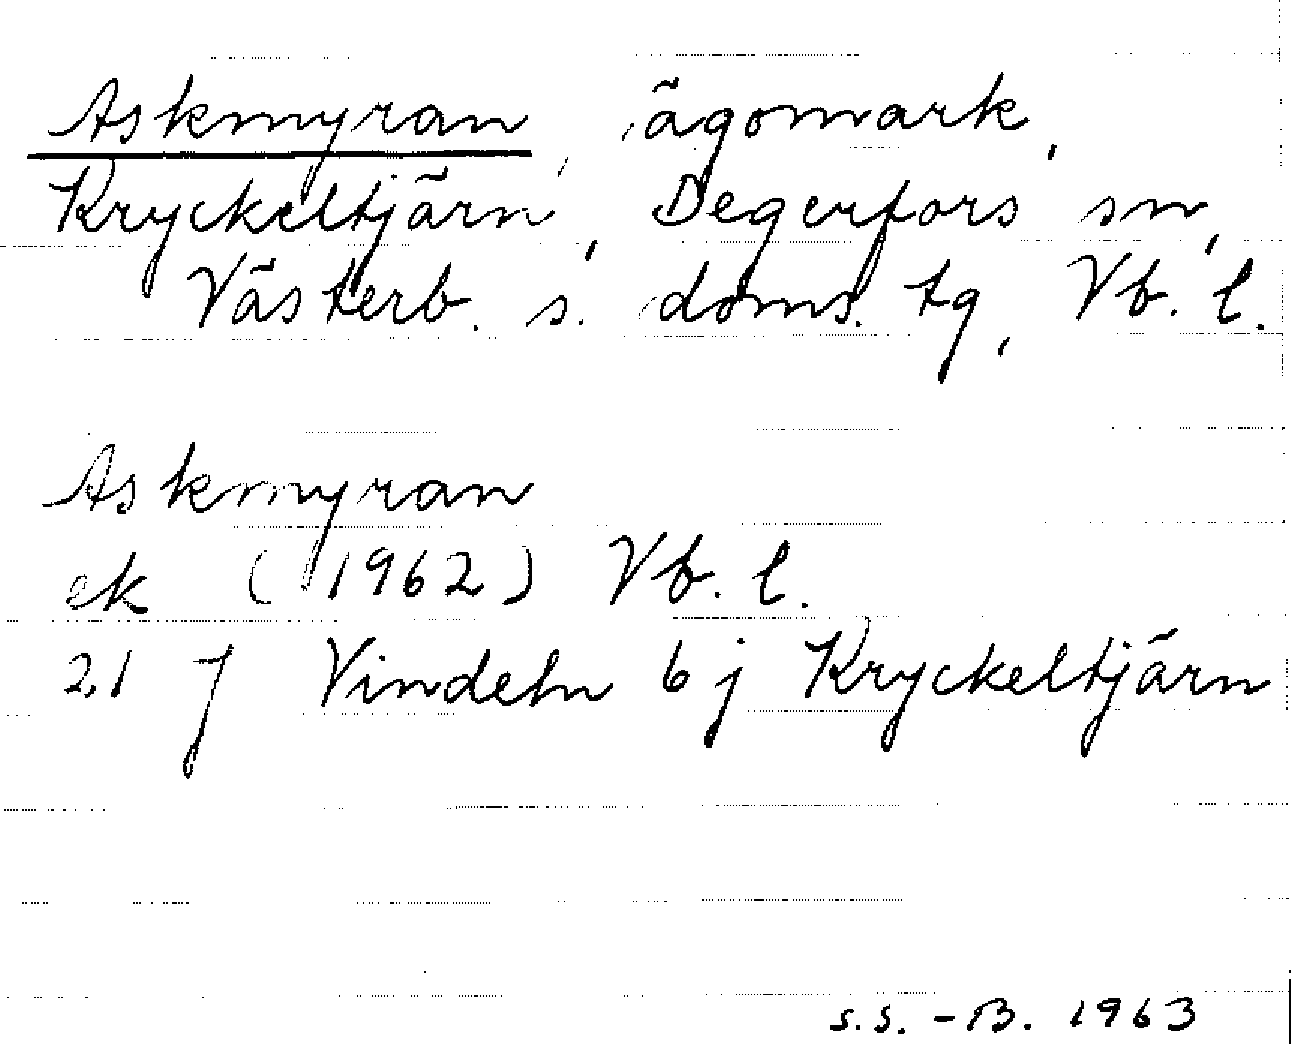 Askmyran, ägomark,
Kryckeltjärn, Degerfors sn,
Västerb. s. doms. tg, Vb. l.
Askmyran
ek (1962) Vb. l.
21 J Vindeln 6 j Kryckeltjärn
s.s. - B. 1963